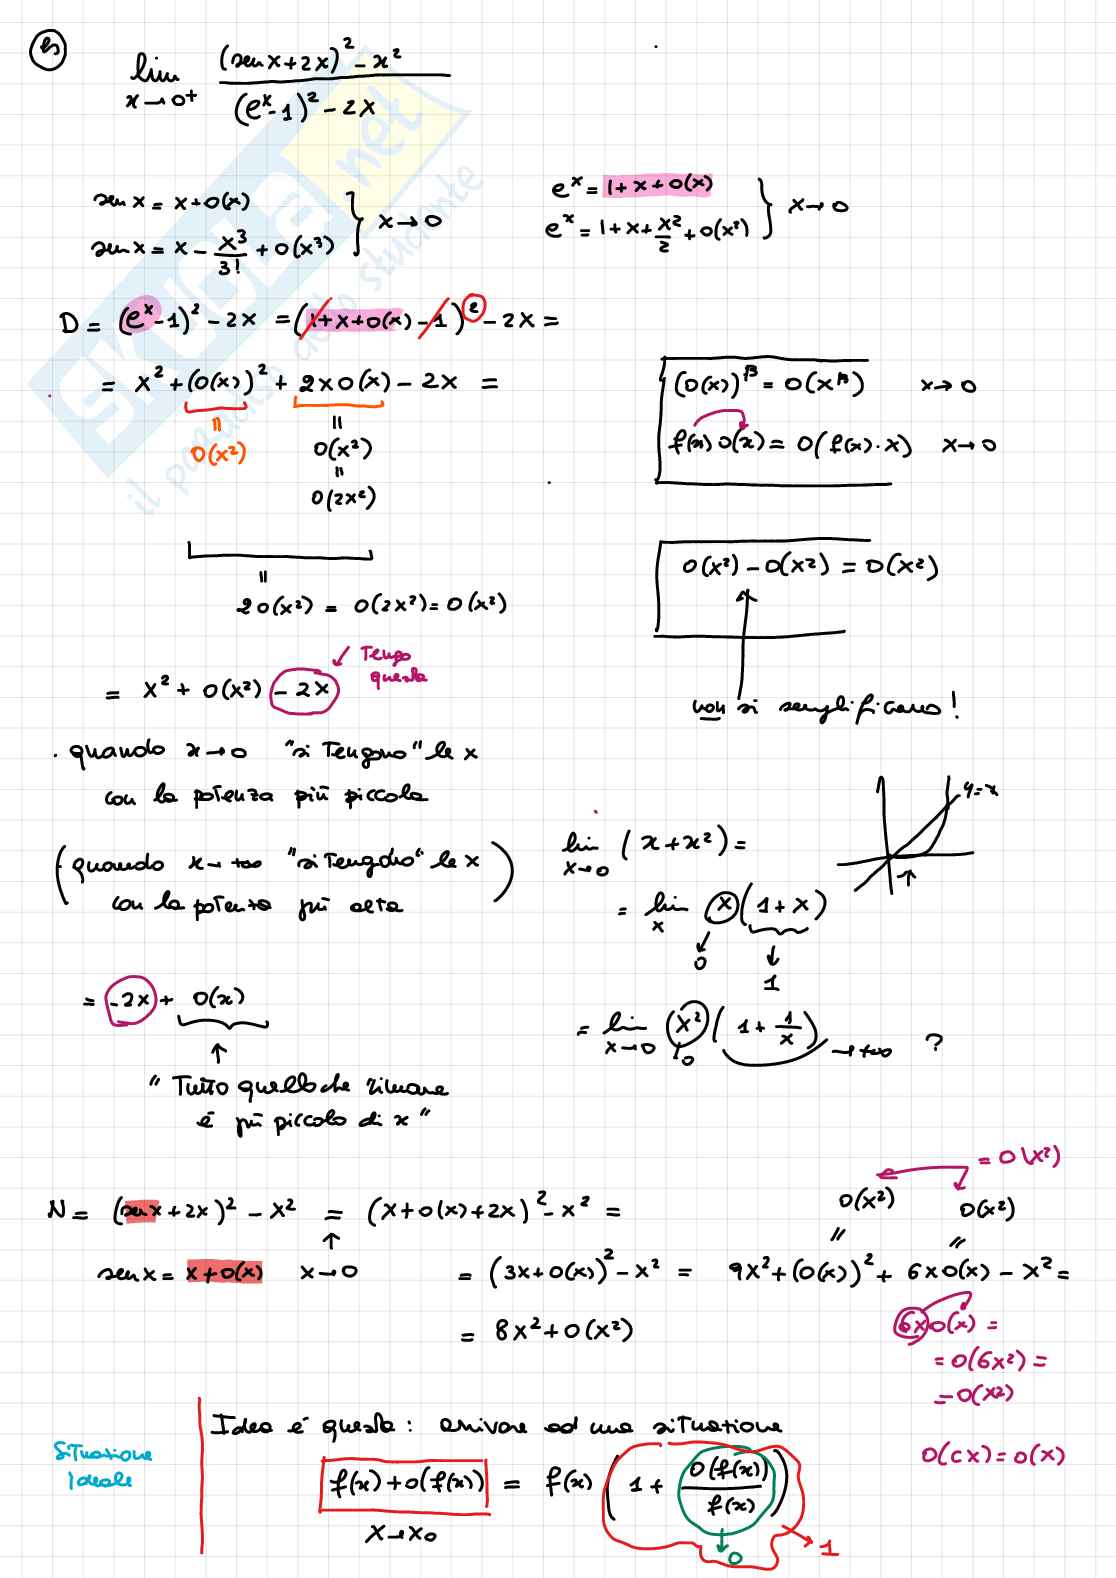 es
lim x→0+ ((sen x+2x)² - x²) / ((eˣ-1)² - 2x)
skuola.net
il paradiso dello studente
sen x = x+o(x)
sen x = x - x³/3! + o(x³) } x→0
eˣ = 1+x+o(x)
eˣ = 1+x+x²/2+o(x²) } x→0
D = (eˣ-1)² - 2x = (1+x+o(x)-1)² - 2x =
= x² + (o(x))² + 2x o(x) - 2x =
= o(x²)
= o(x²)
= o(2x²)
= 2o(x²) = o(2x²) = o(x²)
(o(x))^β = o(x^β) x→0
f(x) o(x) = o(f(x)·x) x→0
o(x²) - o(x²) = o(x²)
non si semplificano!
= x² + o(x²) - 2x
Tengo
questa
. quando x→0 "si tengono" le x
con la potenza più piccola
(quando x→+∞ "si tengono" le x
con la potenza più alta)
lim x→0 (x+x²) =
y=x
= lim x x(1+x)
0
1
= lim x→0 x²(1+1/x) →+∞ ?
0
= -2x + o(x)
"Tutto quello che rimane
è più piccolo di x"
N = (sen x+2x)² - x² = (x+o(x)+2x)² - x² =
sen x = x+o(x) x→0
= (3x+o(x))² - x² = 9x²+(o(x))²+6x o(x) - x² =
o(x²) o(x²)
= o(x²)
= 8x²+o(x²)
6x o(x) =
= o(6x²) =
= o(x²)
o(cx) = o(x)
Situazione
ideale
Idea è questa: arrivare ad una situazione
f(x)+o(f(x)) = f(x) (1 + o(f(x))/f(x))
x→x₀
0
1